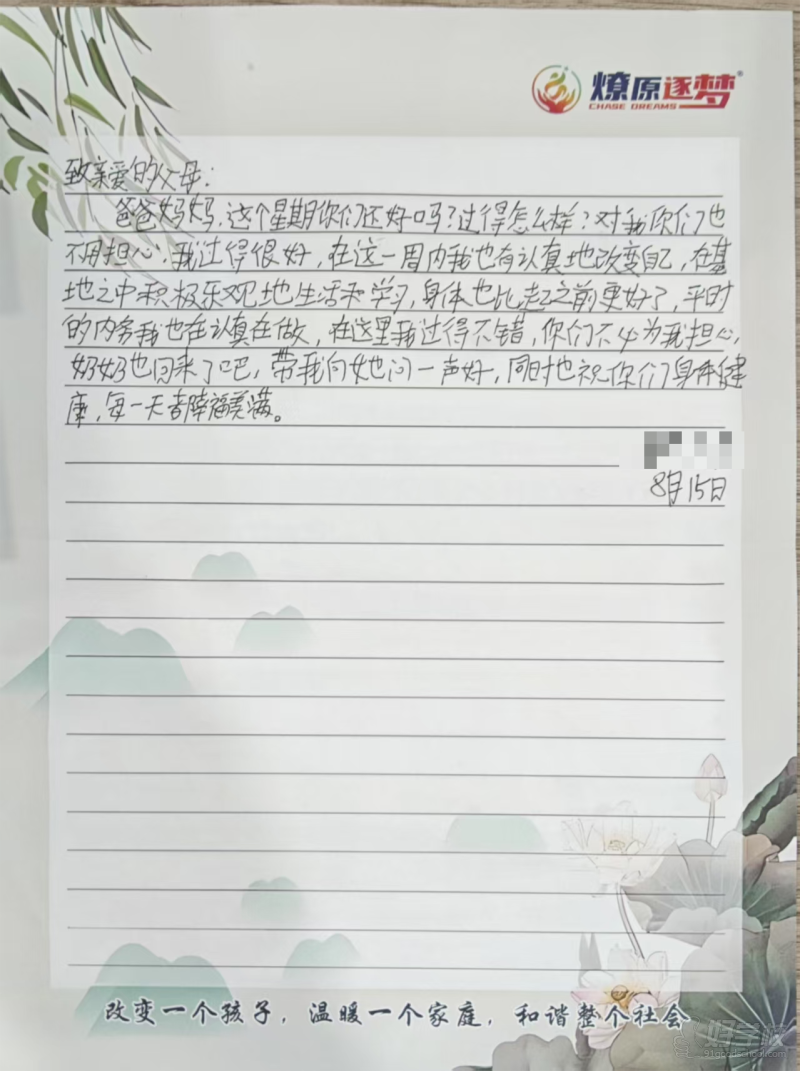 燎原逐梦
CHASE DREAMS
致亲爱的父母:
爸爸妈妈,这个星期你们还好吗?过得怎么样?对我你们也
不用担心,我过得很好,在这一周内我也有认真地改变自己,在基
地之中积极乐观地生活和学习,身体也比起之前更好了,平时
的内务我也在认真在做,在这里我过得不错,你们不必为我担心,
奶奶也回来了吧,带我向她问一声好,同时也祝你们身体健
康,每一天都幸福美满。
8月15日
改变一个孩子,温暖一个家庭,和谐整个社会
好学校
91goodschool.com